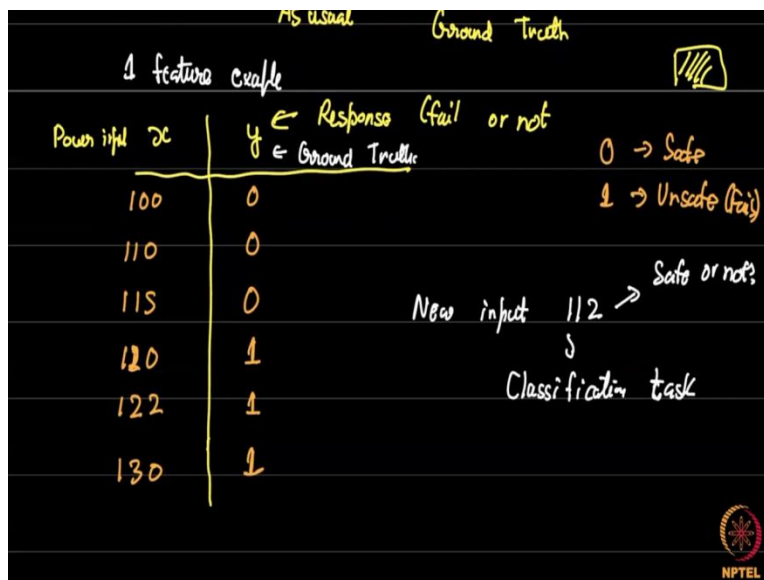 As usual Ground Truth
1 feature exaple
Power iput x y ← Response (fail or not
← Ground Truth
100 0
110 0
115 0
120 1
122 1
130 1
0 → Safe
1 → Unsafe (Fail)
New input 112 → Safe or not?
Classification task
NPTEL